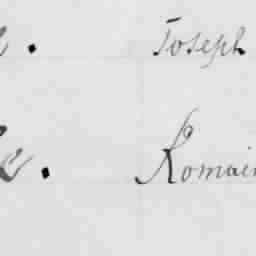 . Joseph
e. Romain